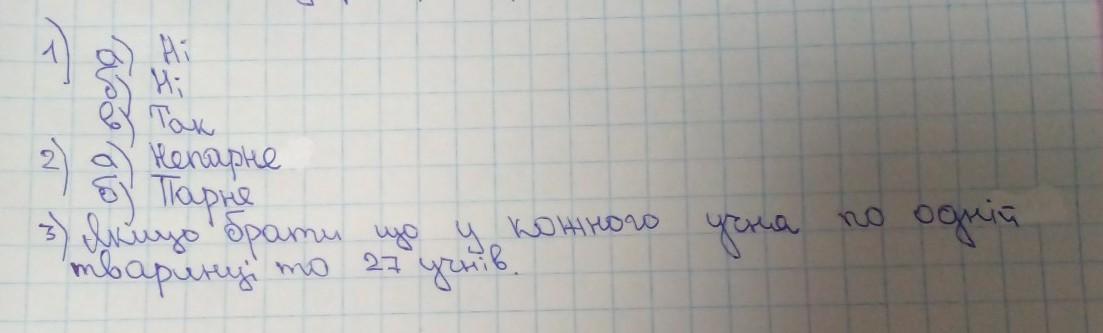 1) а) Ні
б) Ні
в) Так
2) а) Непарне
б) Парне
3) Якщо брати що у кожного учна по одній
тваринці то 27 учнів.